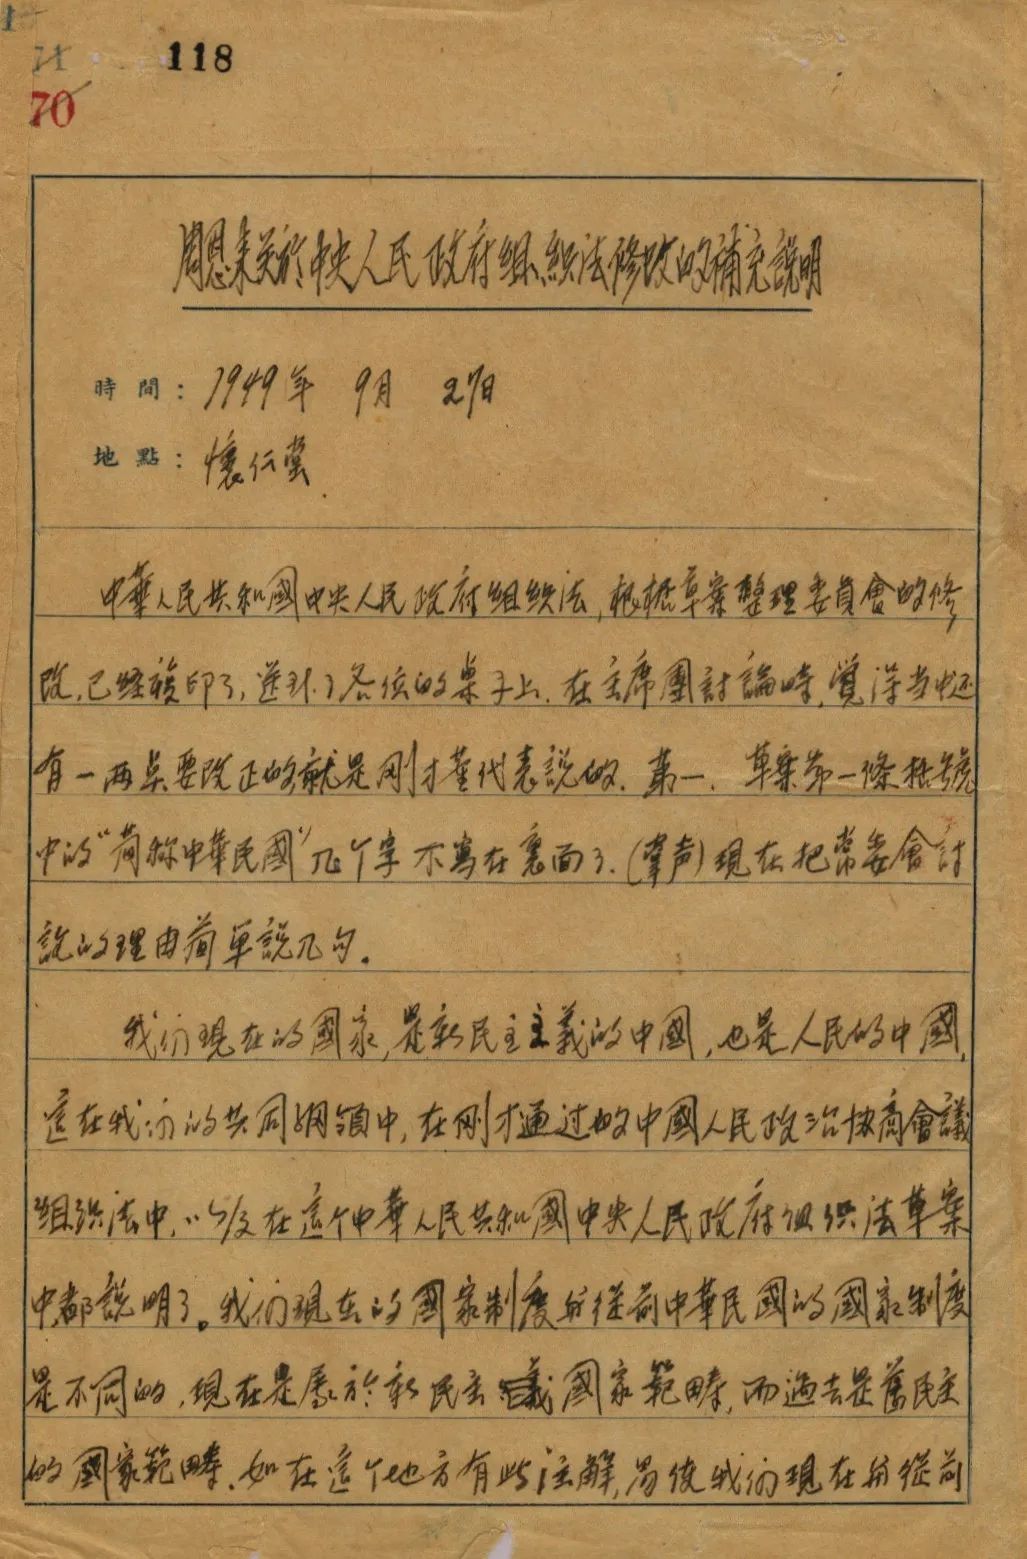 118
70
周恩来关於中央人民政府组织法修改的補充説明
時間：1949年 9月 27日
地點：懷仁堂
中華人民共和國中央人民政府组织法,根据草案整理委員會的修
改,已经複印了,送到了各位的桌子上.在主席團討論時,覺得当中还
有一两点要改正的就是刚才董代表説的.第一.草案第一條括號
中的“简称中華民國”几个字不寫在裏面了.(掌声)現在把常委會討
説的理由简单説几句.
我们現在的國家,是新民主主義的中國,也是人民的中國,
這在我们的共同綱領中,在刚才通过的中國人民政治协商會議
组织法中,以及在這个中華人民共和國中央人民政府组织法草案
中都説明了.我们現在的國家制度与從前中華民國的國家制度
是不同的,現在是屬於新民主義國家範疇,而過去是舊民主
的國家範疇.如在這个地方有些注解,易使我们現在与從前